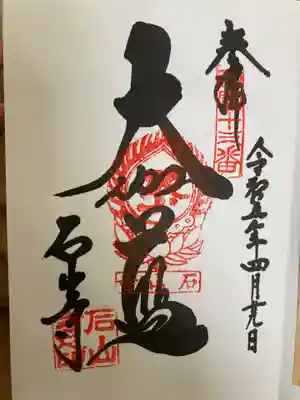 奉拝
第十三番
令和五年四月十九日
大伽藍
石山寺
石山